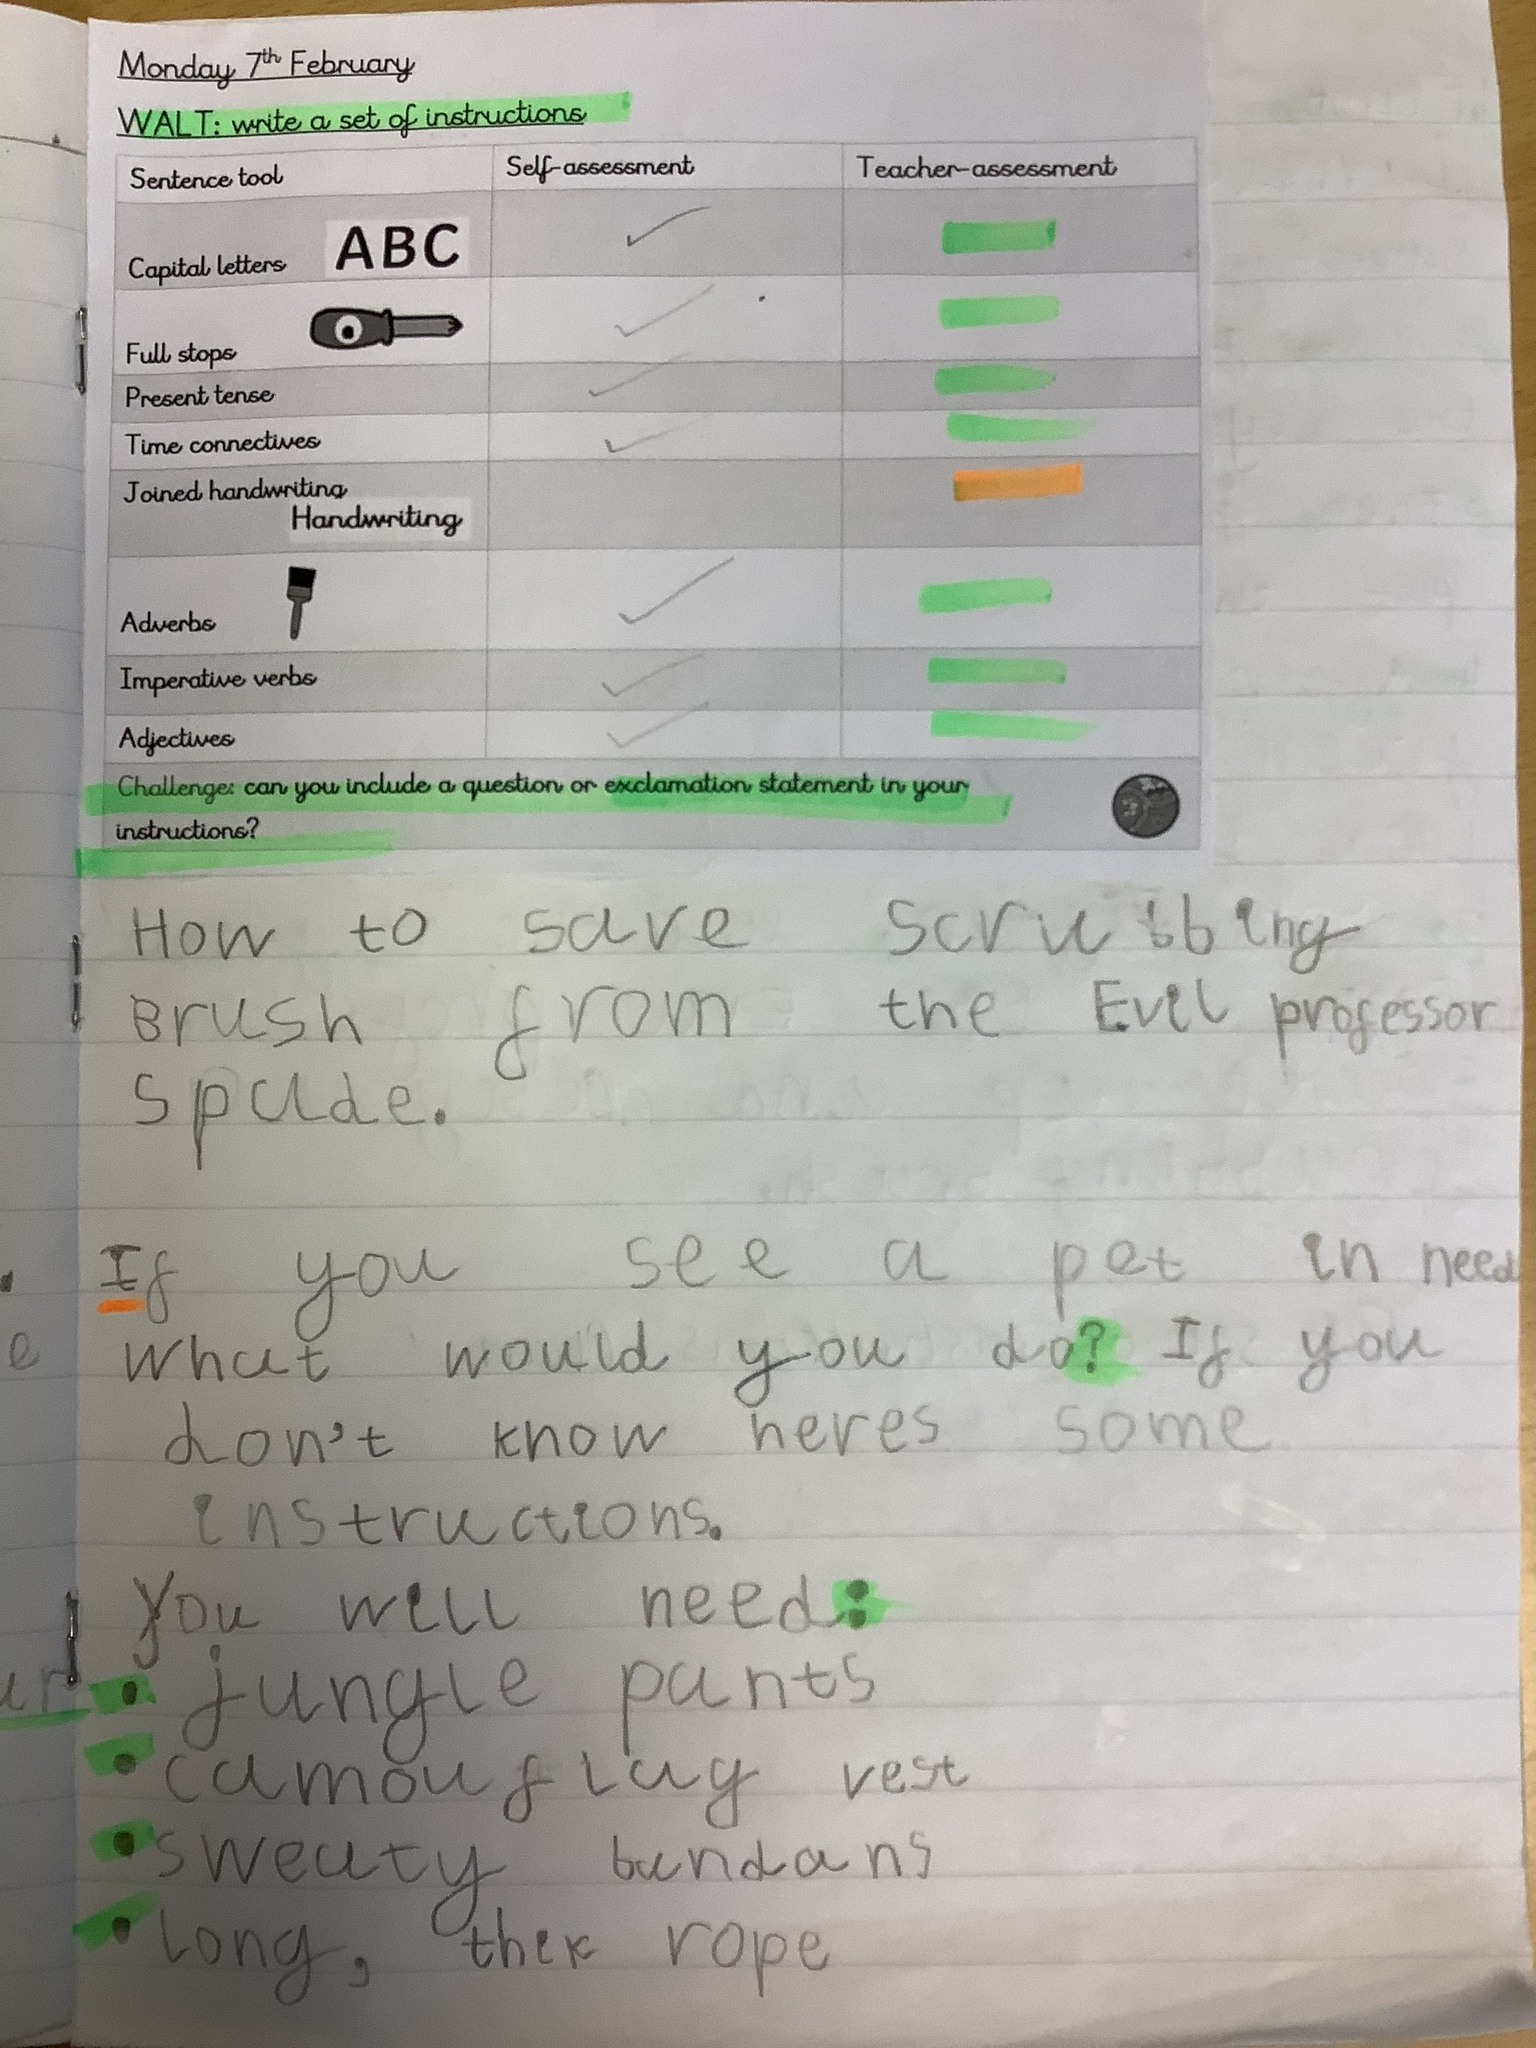 Monday 7th February
WALT: write a set of instructions
Sentence tool Self-assessment Teacher-assessment
Capital letters ABC
Full stops
Present tense
Time connectives
Joined handwriting
Handwriting
Adverbs
Imperative verbs
Adjectives
Challenge: can you include a question or exclamation statement in your
instructions?
How to save scrubbing
Brush from the Evil professor
spade.
If you see a pet in need
what would you do? If you
don't know heres some
instructions.
You will need:
• jungle pants
• camouflag vest
• sweaty bandans
• long, thik rope